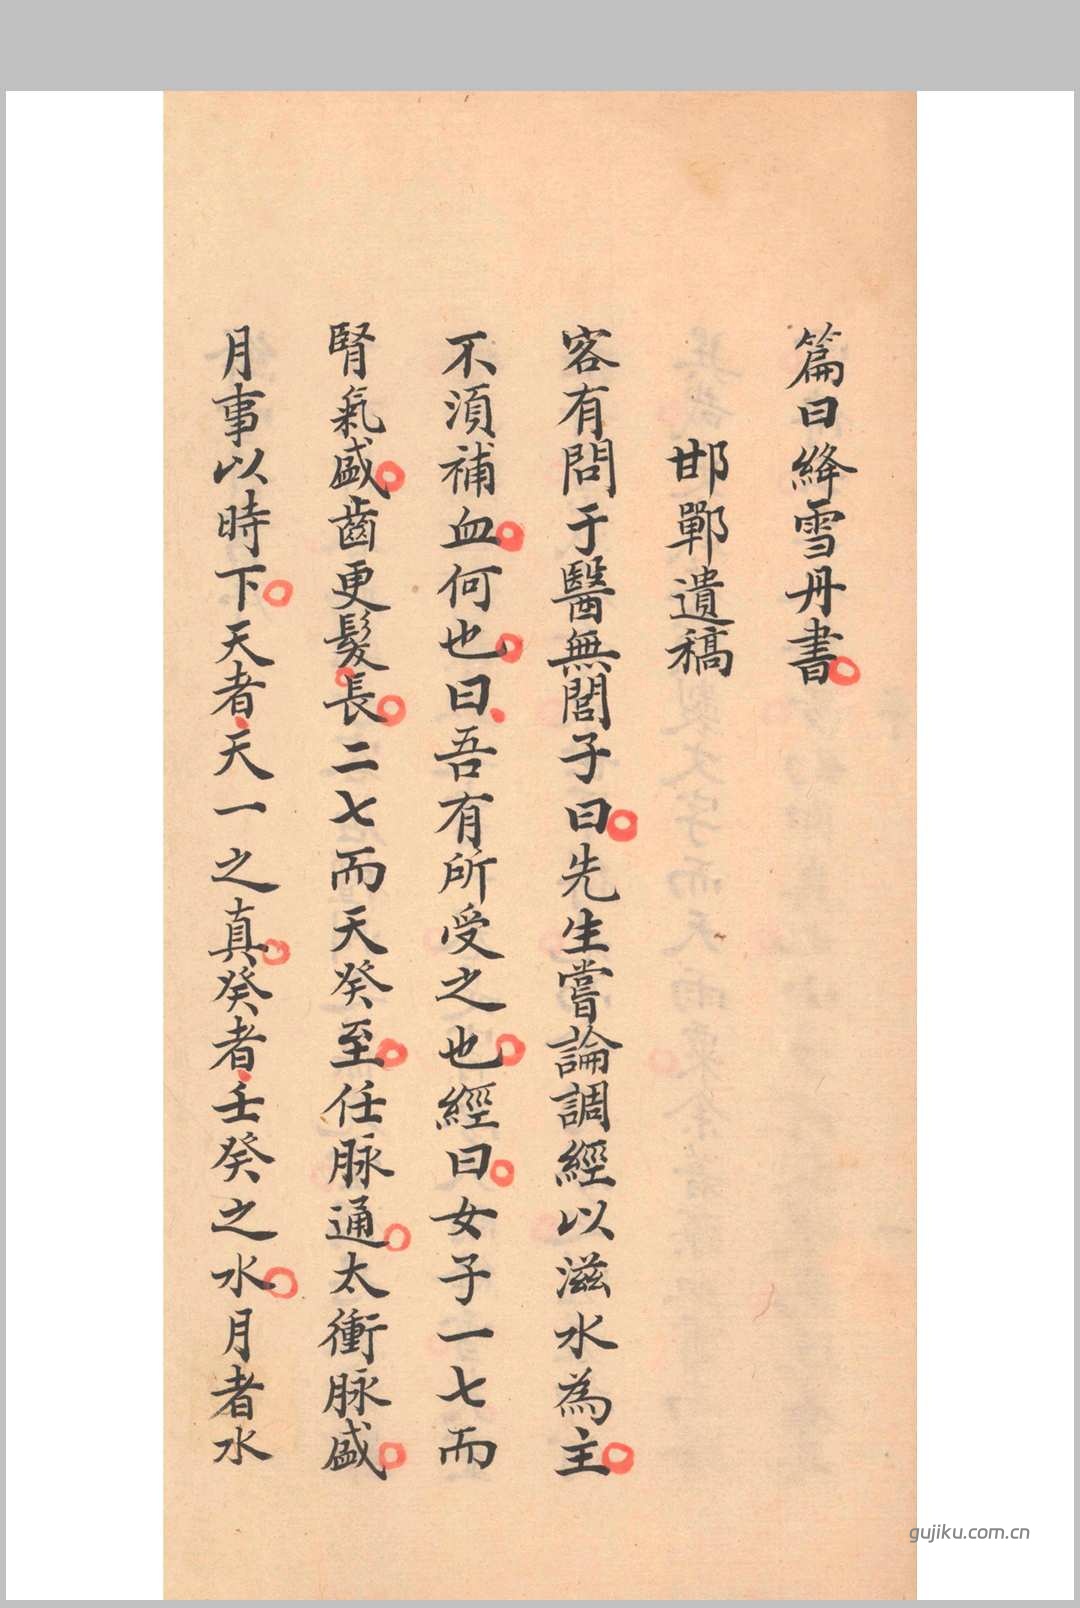 篇曰絳雪丹書
邯鄲遺稿
客有問于醫無閭子曰先生嘗論調經以滋水為主
不須補血何也曰吾有所受之也經曰女子一七而
腎氣盛齒更髮長二七而天癸至任脉通太衝脉盛
月事以時下天者天一之真癸者壬癸之水月者水
gujiku.com.cn